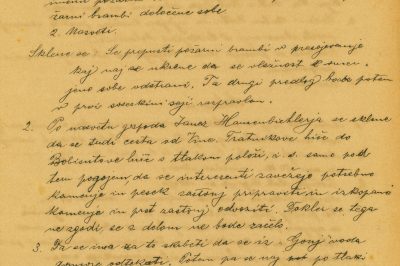 žarni brambi določene sobe.
2. Nasveti.
Sklene se: Se prepusti požarni brambi v presojevanje
kaj naj se ukrene da se vlažnost
sobe odstrani. Ta drugi predlog bode potem
v prvi sosekini seji razpravlan.
2. Po nasvetu gospoda Janez se sklene
da se tudi cesta od Vinc. Tratnikove hiše do
hiše s tlakom položi, a. d. samo pod
tem pogojem da se interesenti zavežejo potrebno
kamenje in pesek zastonj pripraviti in izkopano
kamenje in prst zastonj odvoziti. Dokler se to ga
ne zgodi, se z delom ne bode začelo.
3. Da se ima za to skrbeti da se iz voda
odtekati. Potem pa se naj po tlaki